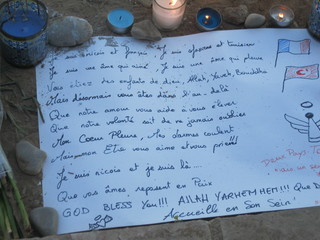 Je suis niçois et français, Je suis algérienne et tunisienne
Je suis une âme qui aime, Je suis une âme qui pleure
Vous étiez des enfants de dieu, Allah, Yavah, Bouddha
Mais désormais vous êtes dans l'au-delà
Que notre amour vous aide à vous élever
Que notre volonté soit de ne jamais oublier
Mon Coeur Pleure, Mes larmes coulent
Mais mon Etre vous aime et vous prie
Je suis niçois et je suis là....
Que vos âmes reposent en Paix
GOD BLESS You!!! ALLAH YARHEMHEM!!! Que D
Accueille en Son Sein!